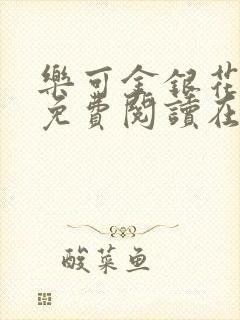 樂可金銀花
免費閱讀在
酸菜鱼